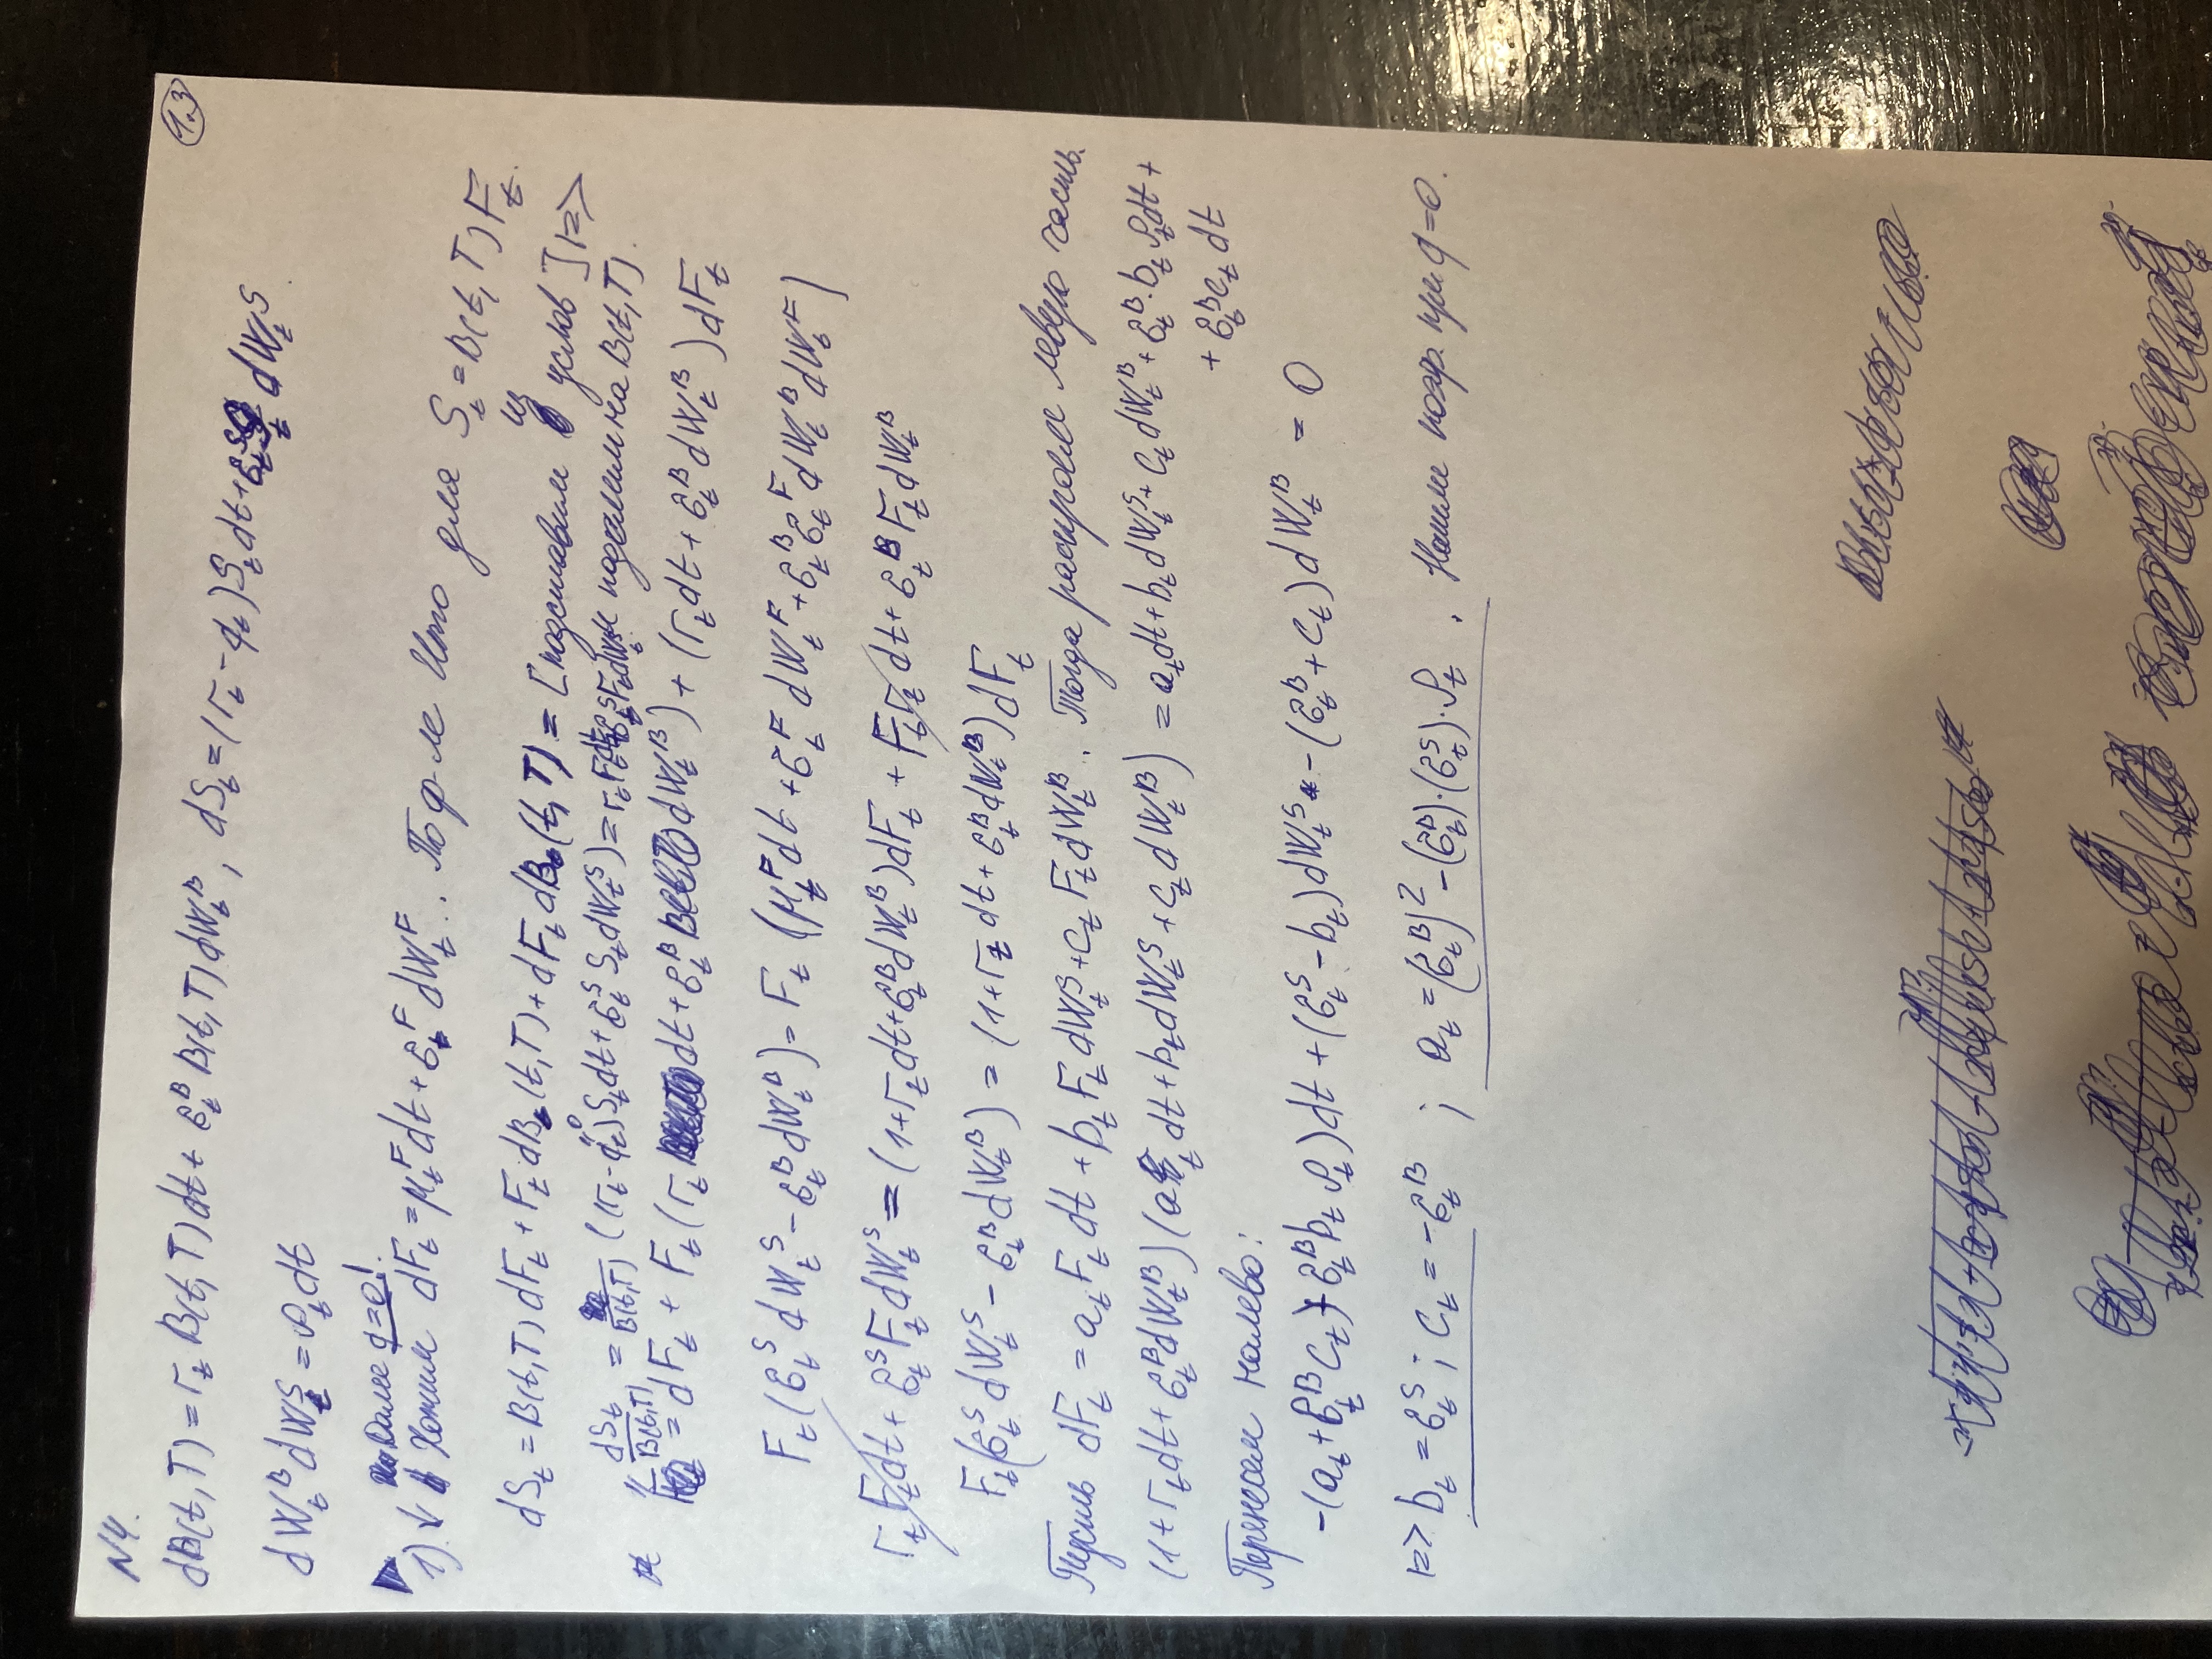 N4.
1.3
dB(t,T) = r_t B(t,T)dt + σ_t^B B(t,T)dW_t^B, dS_t = (r_t - q_t)S_t dt + σ_t^S S_t dW_t^S.
dW_t^B dW_t^S = ρ_t dt
Далее q=0!
1) ↓ Хотим dF_t = μ_t^F dt + σ_t^F dW_t^F. По ф-ле Ито для S_t = B(t,T)F_t.
dS_t = B(t,T)dF_t + F_t dB(t,T) + dF_t dB(t,T) = [подставим из услов] |=>
dS_t/B(t,T) = /B(t,T) ((r_t - q_t)S_t dt + σ_t^S S_t dW_t^S) = r_t F_t dt σ_t^S F_t dW_t^S и поделим на B(t,T).
= dF_t + F_t(r_t dt + σ_t^B dW_t^B) + (r_t dt + σ_t^B dW_t^B)dF_t
F_t(σ_t^S dW_t^S - σ_t^B dW_t^B) = F_t(μ_t^F dt + σ_t^F dW_t^F + σ_t^B σ_t^F dW_t^B dW_t^F)
r_t F_t dt + σ_t^S F_t dW_t^S = (1 + r_t dt + σ_t^B dW_t^B)dF_t + F_t r_t dt + σ_t^B F_t dW_t^B
F_t(σ_t^S dW_t^S - σ_t^B dW_t^B) = (1 + r_t dt + σ_t^B dW_t^B)dF_t
Пусть dF_t = a_t F_t dt + b_t F_t dW_t^S + c_t F_t dW_t^B. Тогда раскроем левую часть.
(1 + r_t dt + σ_t^B dW_t^B)(a_t dt + b_t dW_t^S + c_t dW_t^B) = a_t dt + b_t dW_t^S + c_t dW_t^B + σ_t^B · b_t ρ_t dt +
+ σ_t^B c_t dt
Перенесем налево:
-(a_t + σ_t^B c_t + σ_t^B b_t ρ_t)dt + (σ_t^S - b_t)dW_t^S - (σ_t^B + c_t)dW_t^B = 0
|=> b_t = σ_t^S; c_t = -σ_t^B; a_t = (σ_t^B)^2 - (σ_t^B)·(σ_t^S)·ρ_t. Нашли коэф. при q=0.